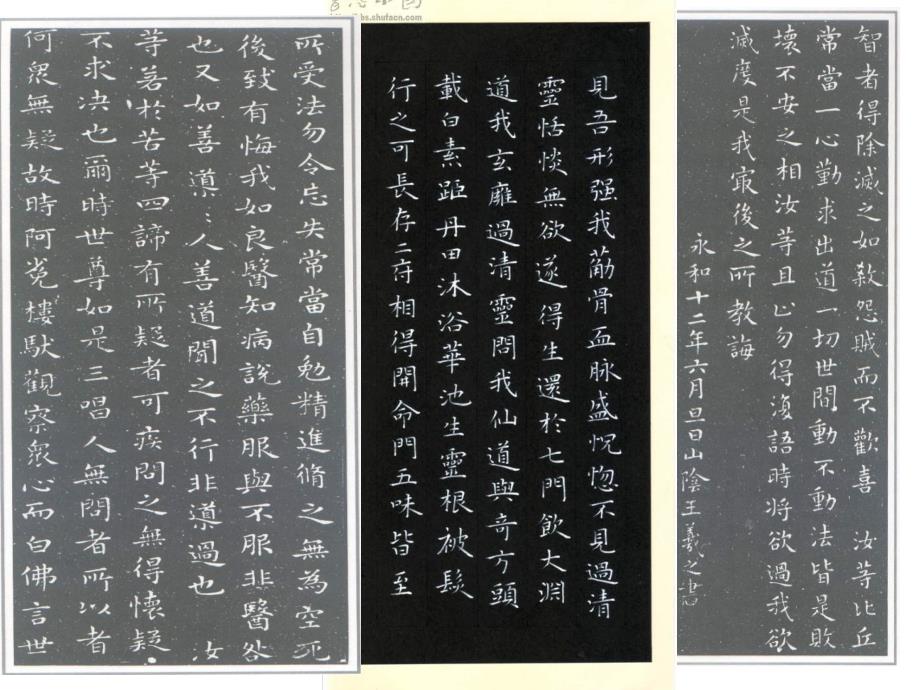 bs.shufacn.com
所受法勿令忘失常當自勉精進脩之無為空死
後致有悔我如良醫知病說藥服與不服非醫咎
也又如善導〻人善道聞之不行非導過也 汝
等若於苦等四諦有所疑者可疾問之無得懷疑
不求决也爾時世尊如是三唱人無問者所以者
何眾無疑故時阿㝹樓馱觀察眾心而白佛言世
見吾形强我筋骨血脉盛怳惚不見過清
靈恬惔無欲遂得生還於七門飲大淵
道我玄廱過清靈問我仙道與奇方頭
載白素距丹田沐浴華池生靈根被髮
行之可長存二府相得開命門五味皆至
智者得除滅之如殺怨賊而不歡喜 汝等比丘
常當一心勤求出道一切世間動不動法皆是敗
壞不安之相汝等且止勿得復語時将欲過我欲
滅度是我最後之所教誨
永和十二年六月旦日山陰王羲之書